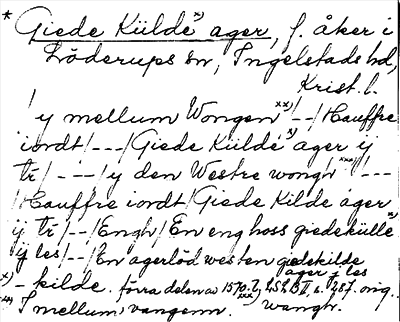 * Giede Külde x) ager, f. åker i
Löderups sn, Ingelstads hd,
Krist. l.
/ y mellum Wongen xx) /--/ Hauffre
iordt /---/ Giede Külde x) ager ij
tr /---/ y den Westre wongh xxx) /---
/ Hauffre iordt / Giede Kilde ager
ij tr /--/ Engh / En eng hoss giedekülle x)
ij les /--/ En agerlöd westen gedekilde
ager j les
x) - kilde. förra delen av 1570. 2, 252 B II, s. 287. orig.
xx) I mellum vangenn. xxx) wangh.